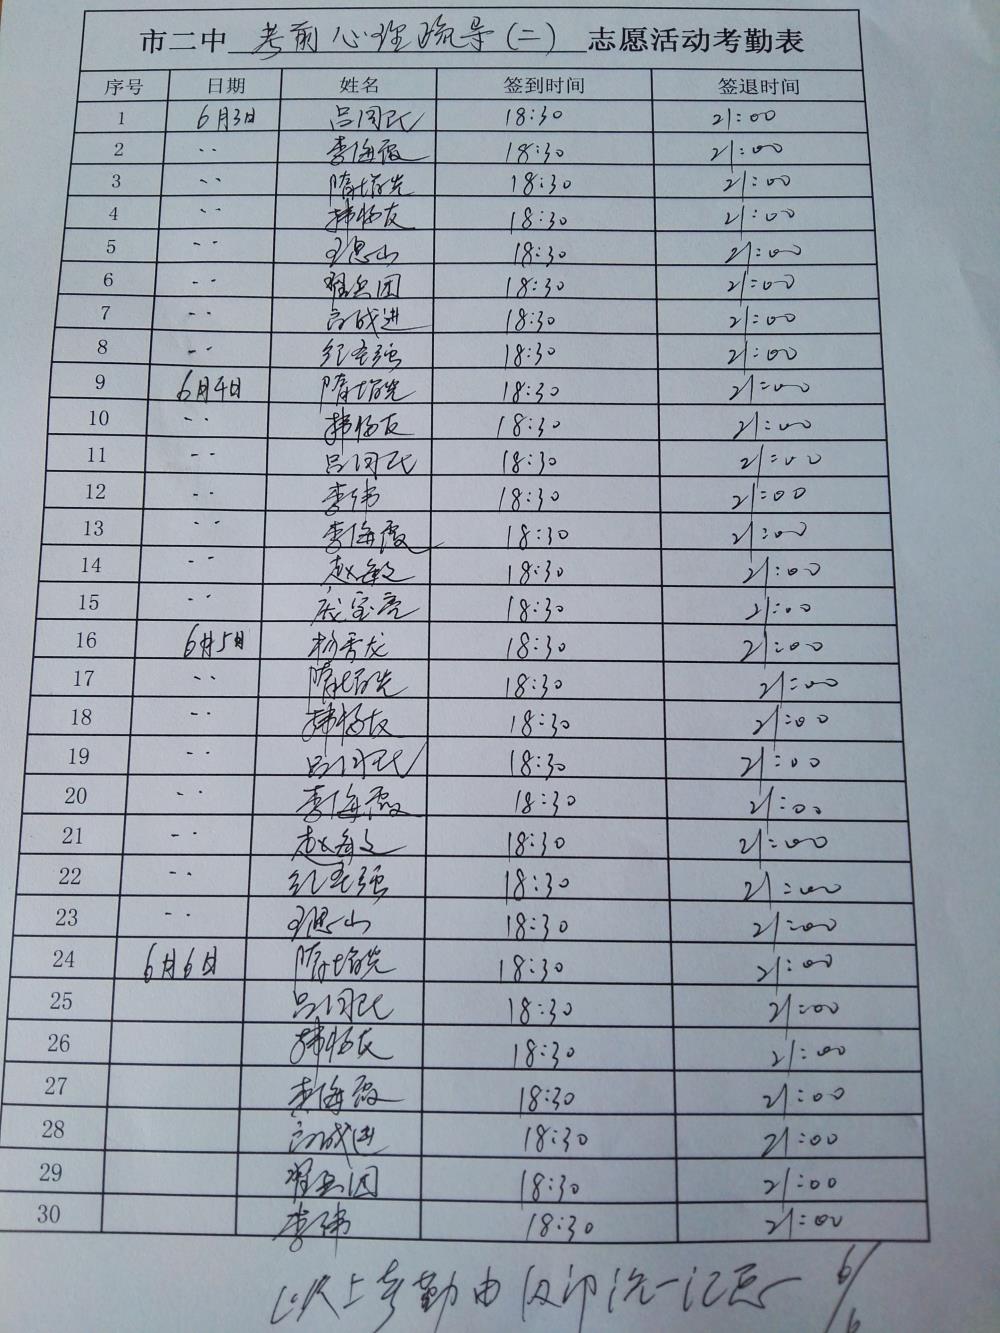 市二中 考前心理疏导(二) 志愿活动考勤表
序号 日期 姓名 签到时间 签退时间
1 6月3日 吕闰民 18:30 21:00
2 .. 李海霞 18:30 21:00
3 .. 隋培先 18:30 21:00
4 .. 韩杨友 18:30 21:00
5 .. 王思山 18:30 21:00
6 .. 兵团 18:30 21:00
7 .. 战进 18:30 21:00
8 .. 纪圣强 18:30 21:00
9 6月4日 隋培先 18:30 21:00
10 .. 韩杨友 18:30 21:00
11 .. 吕闰民 18:30 21:00
12 .. 李伟 18:30 21:00
13 .. 李海霞 18:30 21:00
14 .. 赵敏文 18:30 21:00
15 .. 宝亮 18:30 21:00
16 6月5日 杨秀龙 18:30 21:00
17 .. 隋培先 18:30 21:00
18 .. 韩杨友 18:30 21:00
19 .. 吕闰民 18:30 21:00
20 .. 李海霞 18:30 21:00
21 .. 赵敏文 18:30 21:00
22 .. 纪圣强 18:30 21:00
23 .. 王思山 18:30 21:00
24 6月6日 隋培先 18:30 21:00
25 吕闰民 18:30 21:00
26 韩杨友 18:30 21:00
27 李海霞 18:30 21:00
28 战进 18:30 21:00
29 兵团 18:30 21:00
30 李伟 18:30 21:00
以上考勤由 统一记 6/6